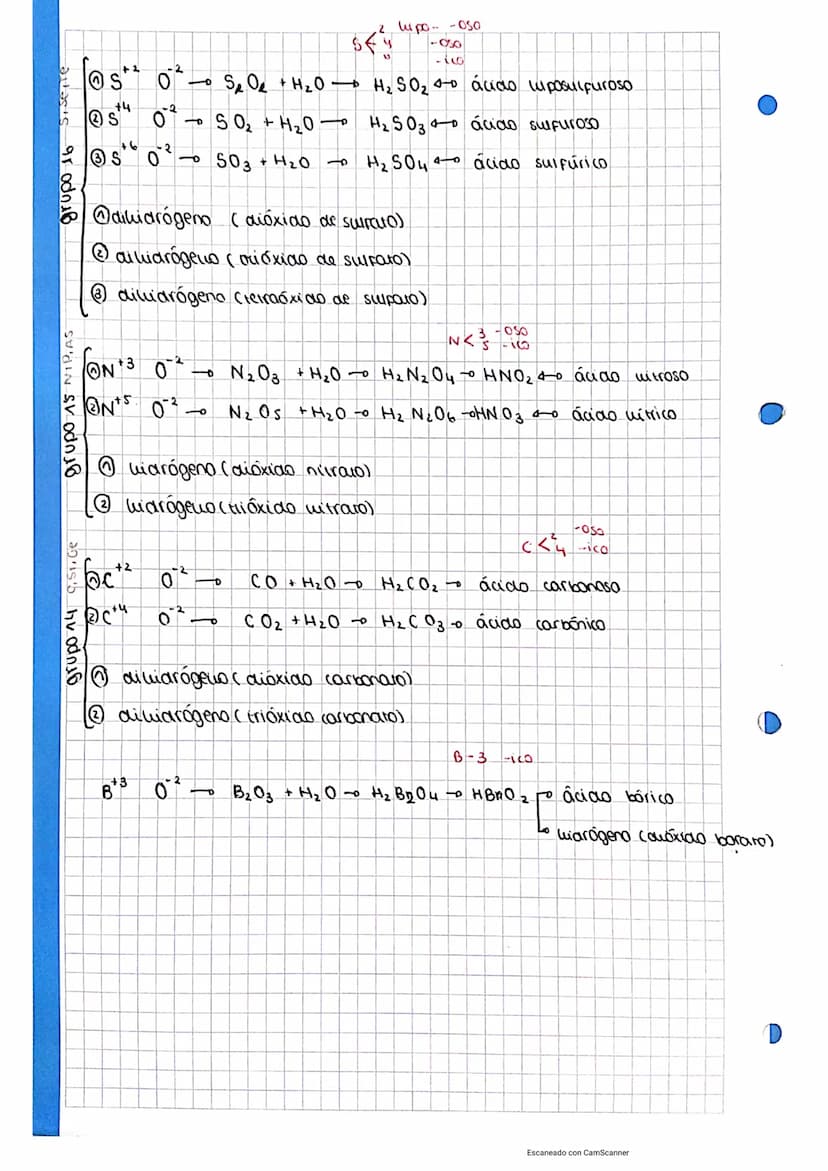 S < 2 hipo- -oso
4 -oso
6 -ico
Grupo 16 S, Se, Te
① S⁺² O⁻² → S₂O₂ + H₂O → H₂SO₂ ↔ ácido hiposulfuroso
② S⁺⁴ O⁻² → SO₂ + H₂O → H₂SO₃ ↔ ácido sulfuroso
③ S⁺⁶ O⁻² → SO₃ + H₂O → H₂SO₄ ↔ ácido sulfúrico
① dihidrógeno (dióxido de sulfato)
② dihidrógeno (trióxido de sulfato)
③ dihidrógeno (tetraóxido de sulfato)
N < 3 -oso
5 -ico
Grupo 15 N, P, AS
① N⁺³ O⁻² → N₂O₃ + H₂O → H₂N₂O₄ → HNO₂ ↔ ácido nitroso
② N⁺⁵ O⁻² → N₂O₅ + H₂O → H₂N₂O₆ → HNO₃ ↔ ácido nítrico
① hidrógeno (dióxido nitrato)
② hidrógeno (trióxido nitrato)
C < 2 -oso
4 -ico
Grupo 14 C, Si, Ge
① C⁺² O⁻² → CO + H₂O → H₂CO₂ → ácido carbonoso
② C⁺⁴ O⁻² → CO₂ + H₂O → H₂CO₃ → ácido carbónico
① dihidrógeno (dióxido carbonato)
② dihidrógeno (trióxido carbonato)
B - 3 -ico
B⁺³ O⁻² → B₂O₃ + H₂O → H₂B₂O₄ → HBO₂ → ácido bórico
↳ hidrógeno (dióxido borato)
Escaneado con CamScanner